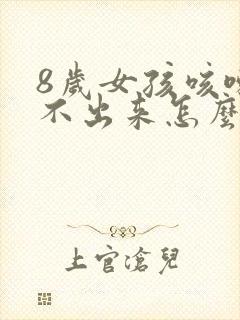 8歲女孩咳嗽
不出来怎麼
上官滄兒